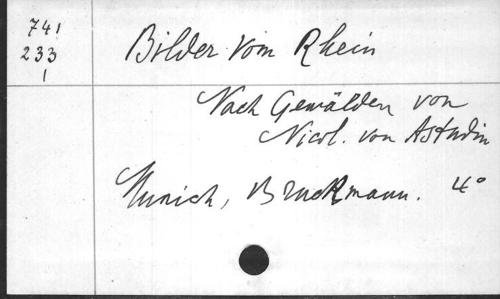 741
233
1
Bilder vom Rhein
Nach Gemälden von
Nicol. von Astudin
Munich, Bruckmann. 4°